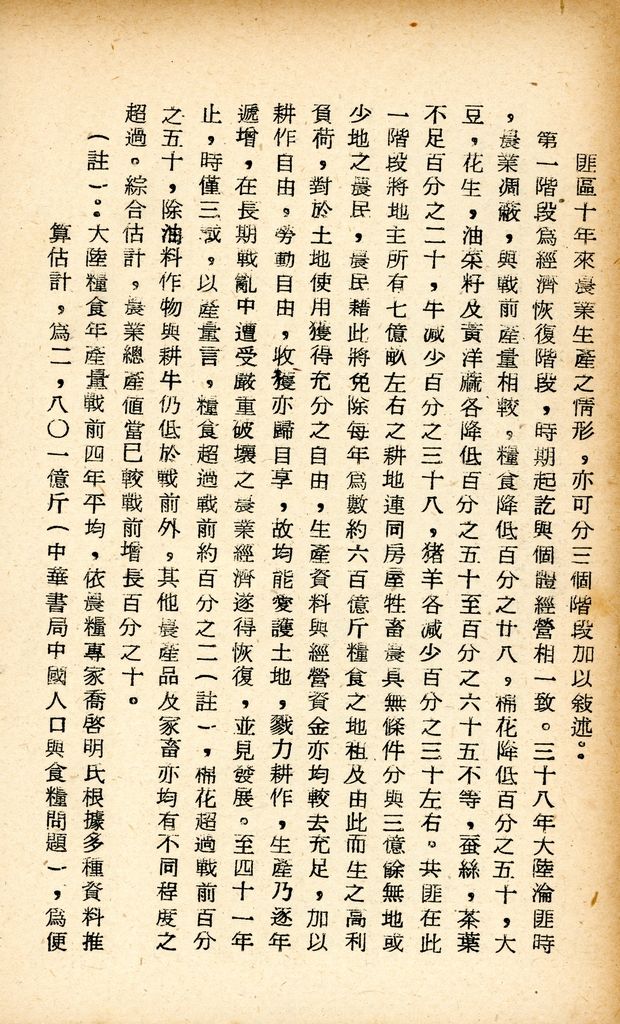 匪區十年來農業生產之情形，亦可分三個階段加以敍述。
第一階段爲經濟恢復階段，時期起訖與個體經營相一致。三十八年大陸淪匪時
，農業凋蔽，與戰前產量相較，糧食降低百分之廿八，棉花降低百分之五十，大
豆，花生，油菜籽及黃洋蔴各降低百分之五十至百分之六十五不等，蚕絲，茶葉
不足百分之二十，牛減少百分之三十八，猪羊各減少百分之三十左右。共匪在此
一階段將地主所有七億畝左右之耕地連同房屋牲畜農具無條件分與三億餘無地或
少地之農民，農民藉此將免除每年爲數約六百億斤糧食之地租及由此而生之高利
負荷，對於土地使用獲得充分之自由，生產資料與經營資金亦均較去充足，加以
耕作自由，勞動自由，收獲亦歸自享，故均能愛護土地，戮力耕作，生產乃逐年
遞增，在長期戰亂中遭受嚴重破壞之農業經濟遂得恢復，並見發展。至四十一年
止，時僅三載，以產量言，糧食超過戰前約百分之二（註一），棉花超過戰前百分
之五十，除油料作物與耕牛仍低於戰前外，其他農產品及家畜亦均有不同程度之
超過。綜合估計，農業總產値當已較戰前增長百分之十。
（註一）：大陸糧食年產量戰前四年平均，依農糧專家喬啓明氏根據多種資料推
算估計，爲二，八〇一億斤（中華書局中國人口與食糧問題），爲便